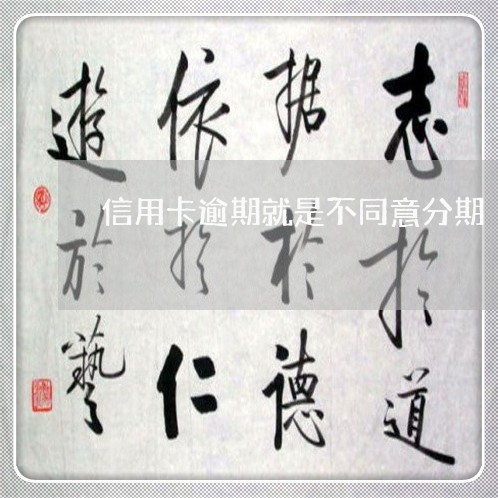 志於道
据於德
依於仁
遊於藝
信用卡逾期就是不同意分期